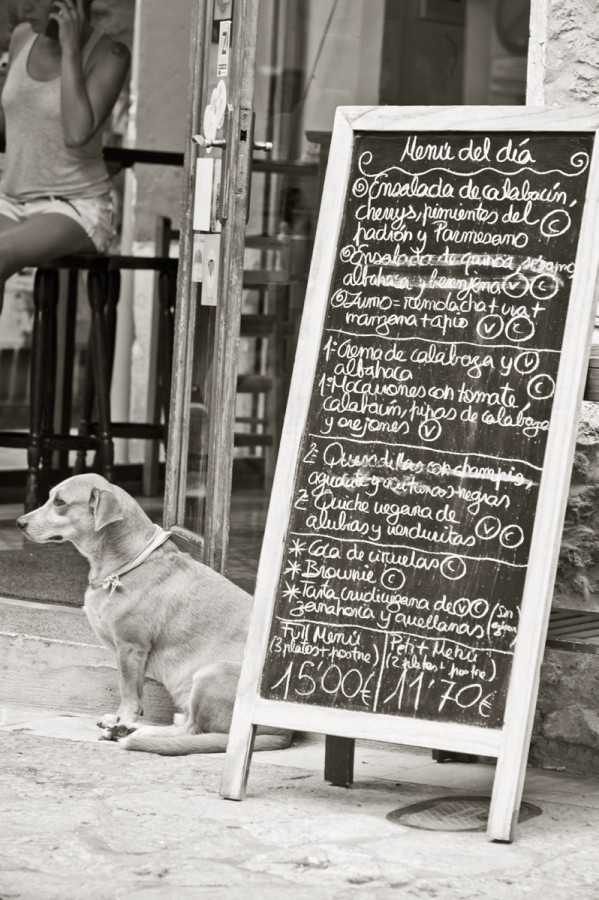 Menú del día
Ensalada de calabacín,
cherrys, pimientos del
padrón y Parmesano C
Ensalada de quinoa, sésamo
albahaca y berenjena V C
Zumo = remolacha + uva +
manzana + apio V C
1: Crema de calabaza y V
albahaca C
1: Macarrones con tomate
calabacín, pipas de calabaza
y orejones V
2: Quesadillas con champis,
aguacate y aceitunas negras
2: Quiche vegana de
alubias y verduritas V C
* Coca de ciruelas C
* Brownie C
* Tarta crudivegana de V C (Sin
zanahoria y avellanas
Full Menú
(3 platos + postre)
15'00€
Petit Menú
(2 platos + postre)
11'70€